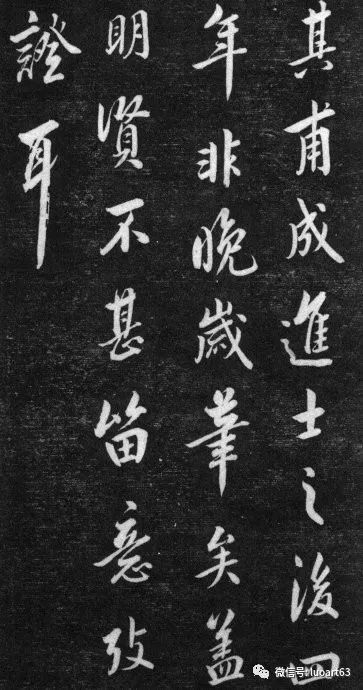 其甫成進士之後四
年非晚歲筆矣蓋
明賢不甚留意攷
證耳
微信号: luoart63